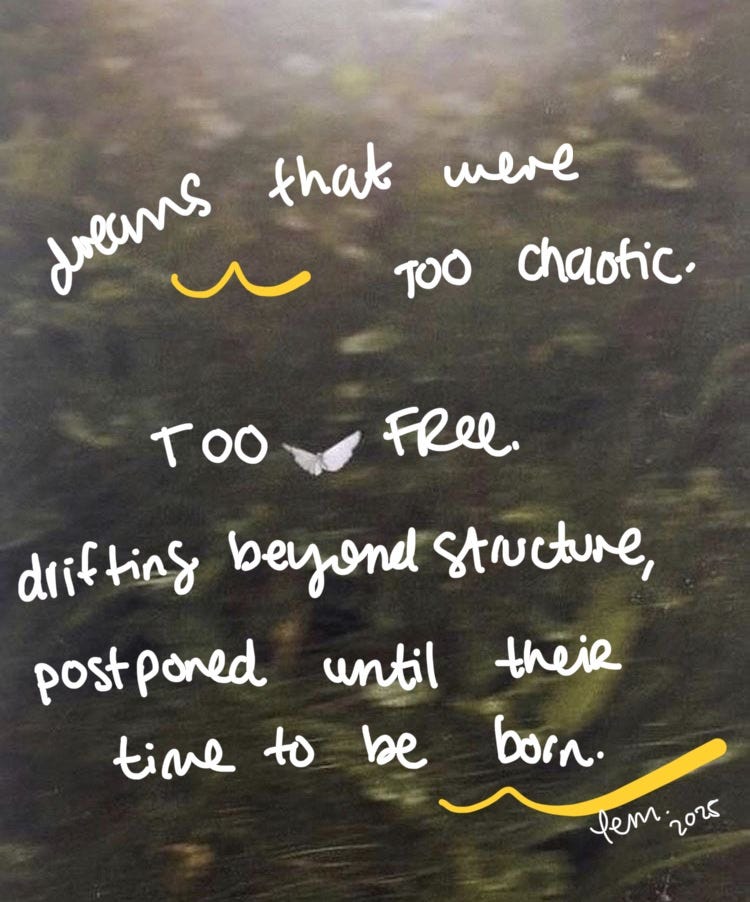 dreams that were
TOO chaotic.
TOO FRee.
drifting beyond structure,
postponed until their
time to be born.
lem. 2025